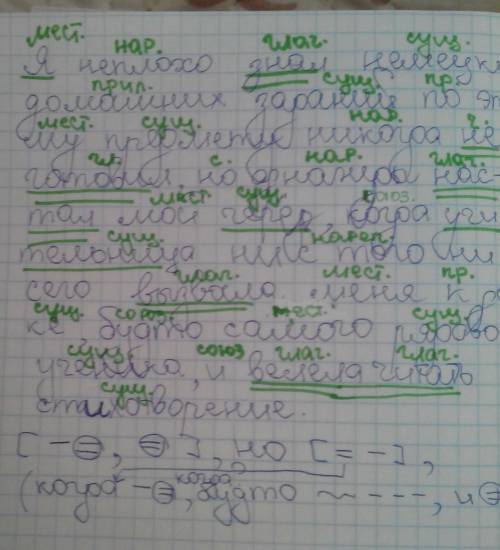 мест. нар. глаг. сущ.
Я неплохо знал немецки
прил. сущ. пр.
домашних заданий по эт
мест. сущ. нар. ч.
му предмету никогда не
гл. с. нар. глаг.
готовил, но однажды нас-
мест. сущ. союз.
тал мой черед, когда учи
сущ. нареч.
тельница ни с того ни
глаг. мест. пр.
сего вызвала меня к
сущ. союз. мест. сущ.
ке будто самого рядово
сущ. союз глаг. глаг.
ученика, и велела читать
сущ.
стихотворение.
но
когда
(когда будто и